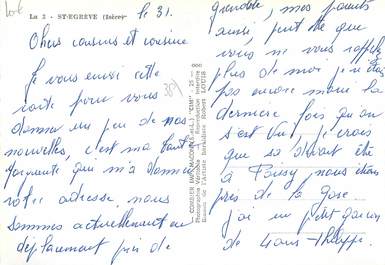 La 2 - ST-EGRÈVE (Isère)
le 31.
Chers cousins et cousine
Je vous envoi cette
carte pour vous
donner un peu de nos
nouvelles, c'est ma tante
qui m'a donné
votre adresse. nous
sommes actuellement en
déplacement près de
COMBIER IMP. MACON (S.-et-L.) "CIM"
Photographie Véritable - Reproduction Interdite
de l'Artiste Robert LOUIS
grenoble, mes parents
aussi, peut être que
vous ne vous rappelez
plus de moi je n'étais
pas encore marié la
dernière fois qu'on
s'est vu, je crois
que sa devait être
à Poissy, nous étions
près de la gare
j'ai un petit garçon
de 4 ans Philippe.